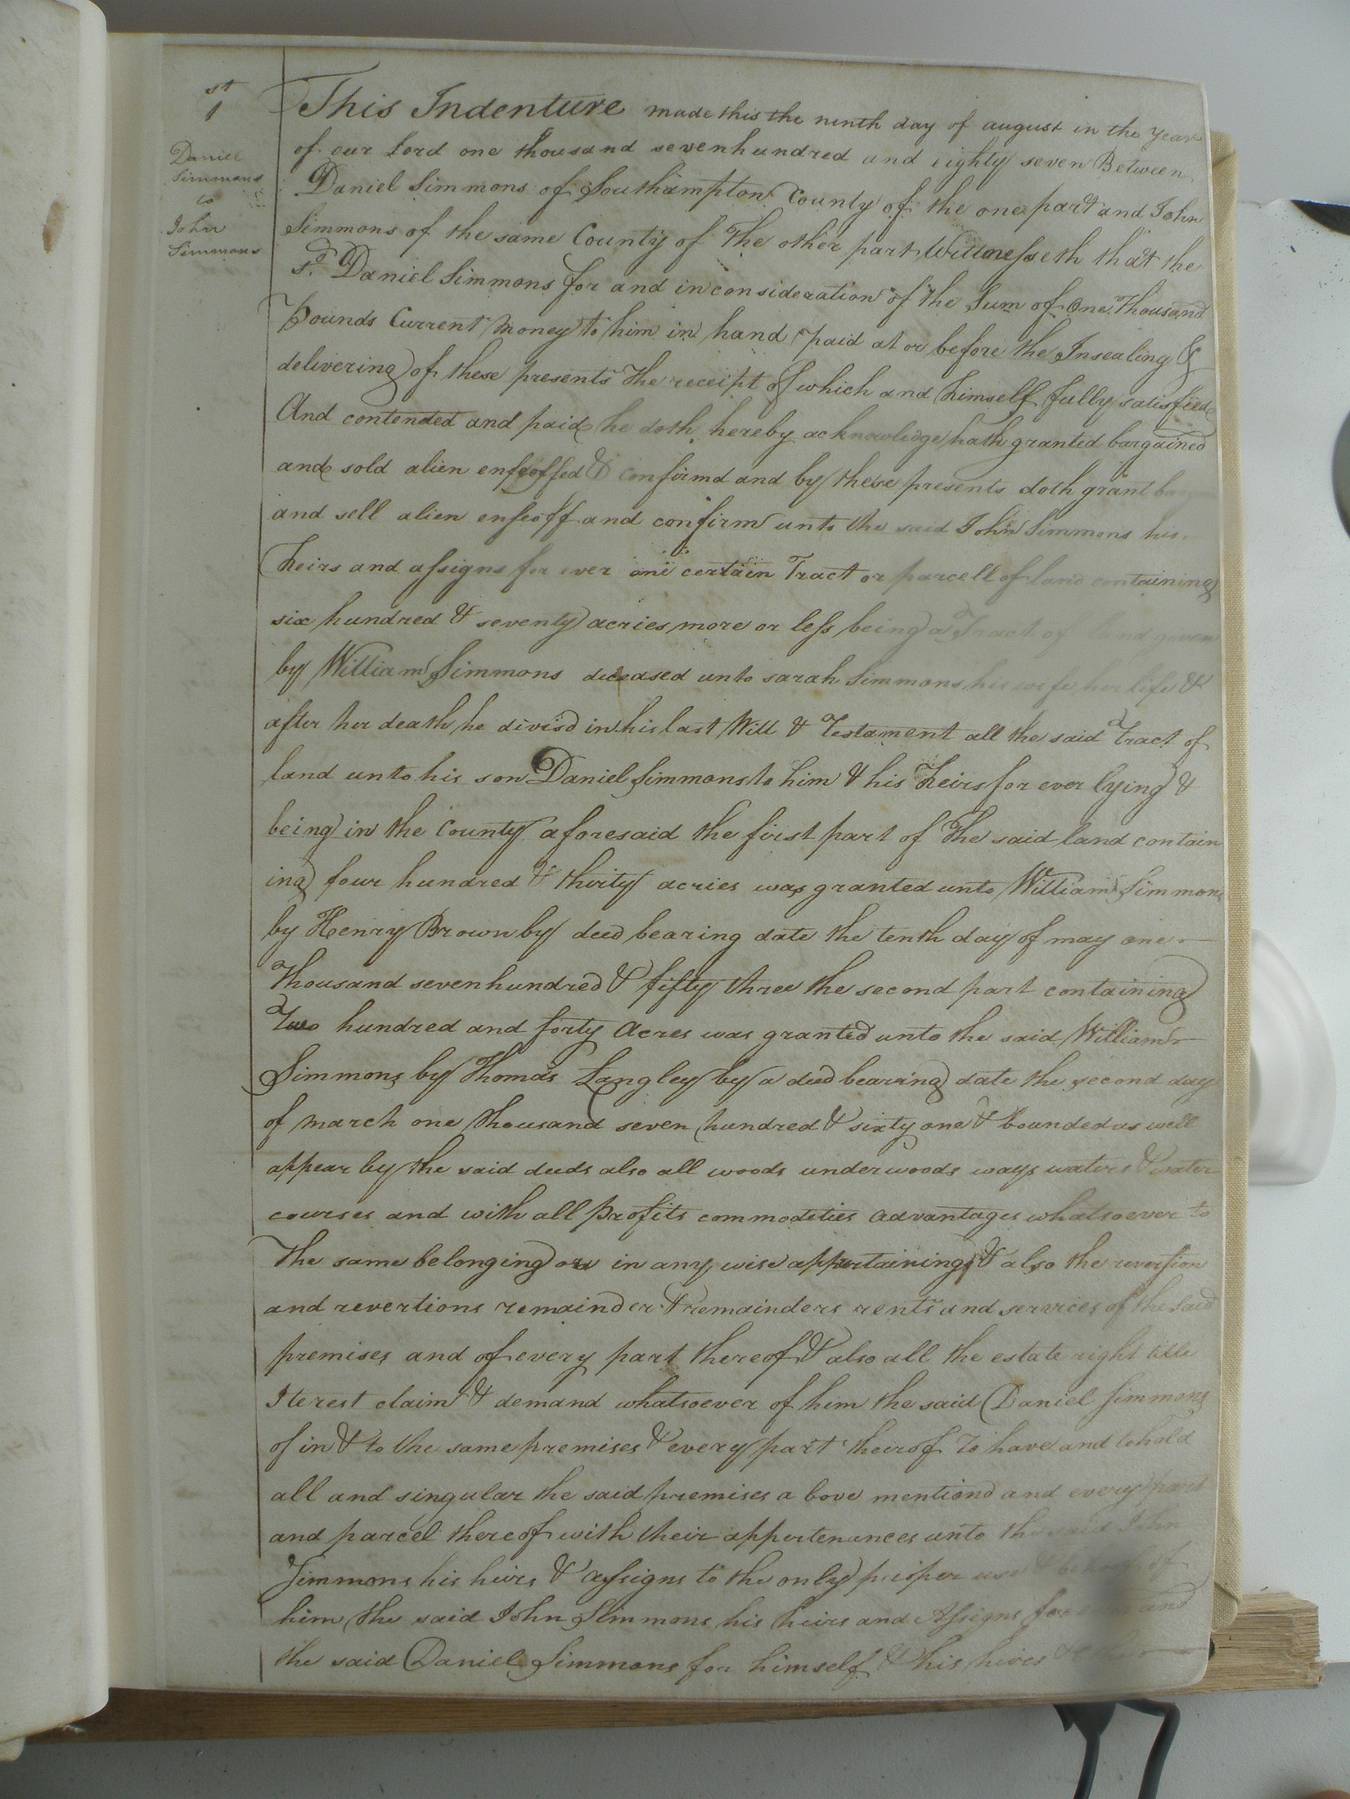 st
1
Daniel
Simmons
to
John
Simmons
This Indenture made this the ninth day of august in the year
of our Lord one thousand sevenhundred and eighty seven Between
Daniel Simmons of Southampton County of the one part and John
Simmons of the same County of The other part Wittnesseth that the
sd. Daniel Simmons for and in consideration of the Sum of One Thousand
Pounds Current Money to him in hand paid at or before the Insealing &
delivering of these presents the receipt of which and himself fully satisfied
And contended and paid he doth hereby acknowledge hath granted bargained
and sold alien enfeoffed & confirmd and by these presents doth grant bargain
and sell alien enfeoff and confirm unto the said John Simmons his
heirs and assigns for ever one certain Tract or parcell of land containing
six hundred & seventy acries more or less being a Tract of land given
by William Simmons deceased unto sarah Simmons his wife her life &
after her death he divisd in his last Will & Testament all the said Tract of
land unto his son Daniel Simmons to him & his heirs for ever lying &
being in the County aforesaid the first part of The said land contain
ing four hundred & thirty acries was granted unto William Simmons
by Henry Brown by deed bearing date the tenth day of may one
Thousand sevenhundred & fifty three the second part containing
Two hundred and forty Acres was granted unto the said William
Simmons by Thomas Langley by a deed bearing date the second day
of march one thousand seven hundred & sixty one & bounded as well
appear by the said deeds also all woods underwoods ways waters & water
courses and with all profits commodities advantages whatsoever to
the same belonging or in any wise appertaining & also the reversion
and revertions remainder & remainders rents and services of the said
premises and of every part thereof & also all the estate right title
Iterest claim & demand whatsoever of him the said Daniel Simmons
of in & to the same premises & every part theirof To have and to hold
all and singular the said premises a bove mentiond and every part
and parcel thereof with their appertenances unto the said John
Simmons his heirs & assigns to the only proper use & behoof of
him the said John Simmons his heirs and Assigns for ever and
the said Daniel Simmons for himself & his heires